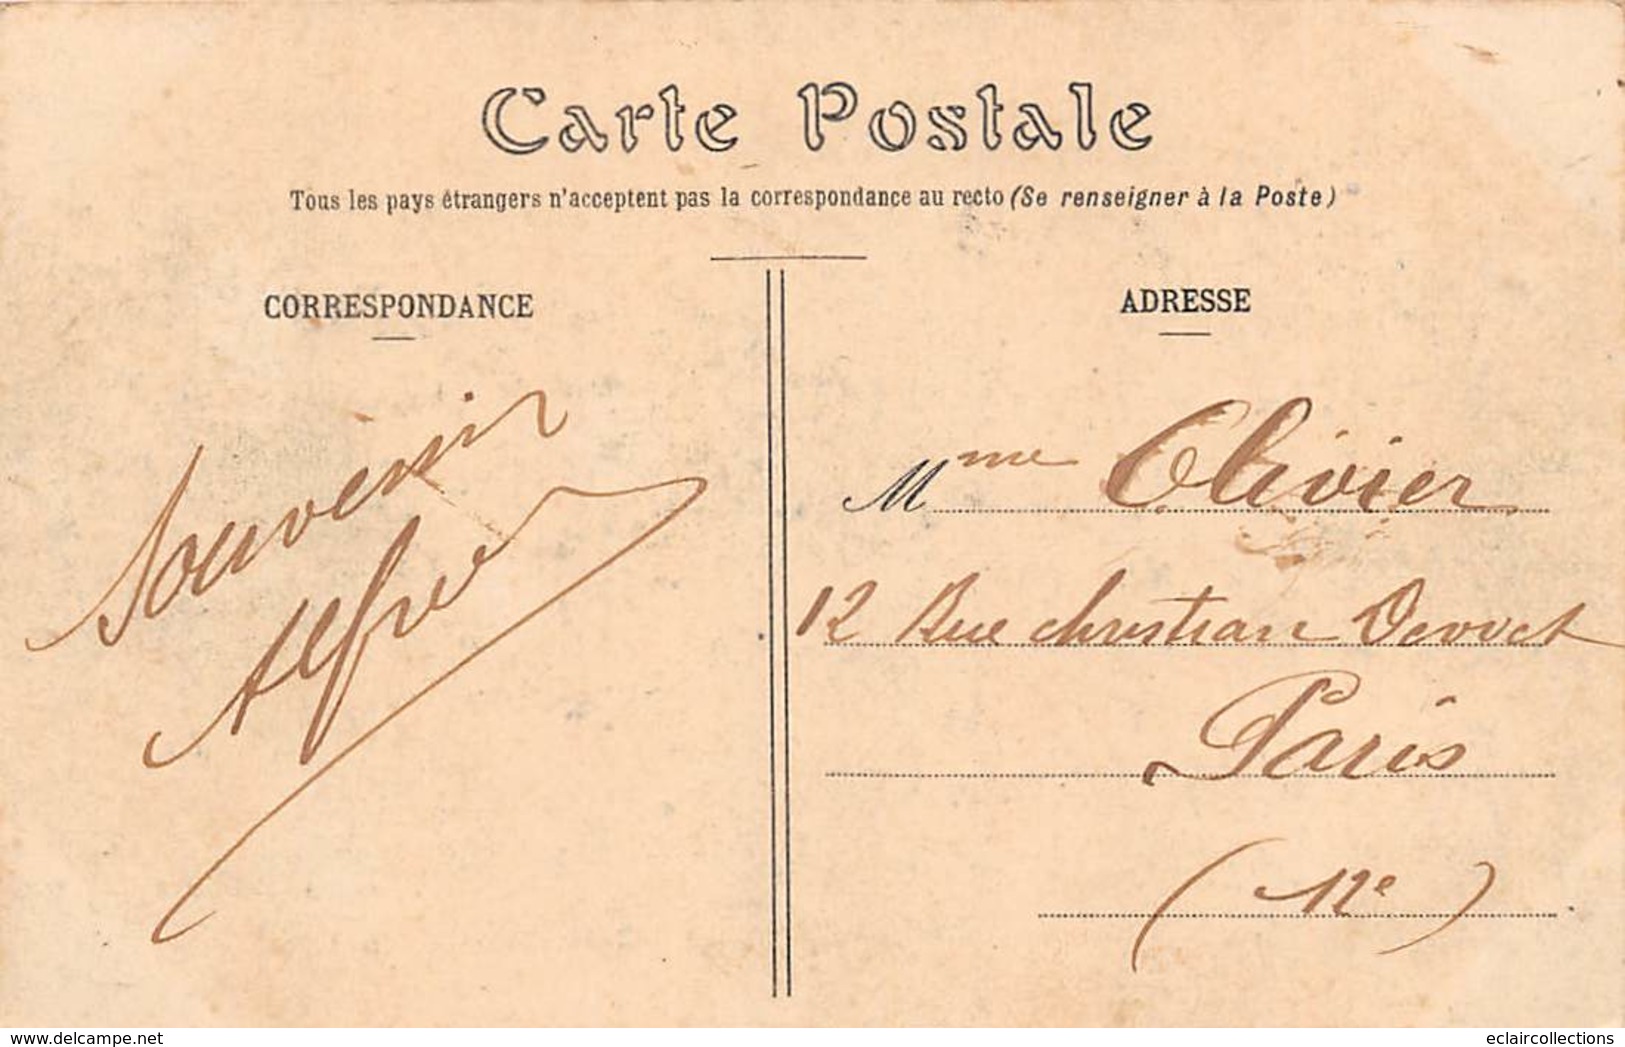 Carte Postale
Tous les pays étrangers n'acceptent pas la correspondance au recto (Se renseigner à la Poste)
CORRESPONDANCE
Souvenir
Alfred
ADRESSE
Mme Olivier
12 Rue christian Dewet
Paris
(12e)
delcampe.net
eclaircollections